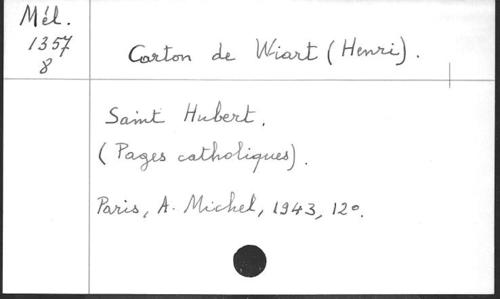 Mél.
1357
8
Carton de Wiart (Henri).
Saint Hubert.
(Pages catholiques).
Paris, A. Michel, 1943, 12º.